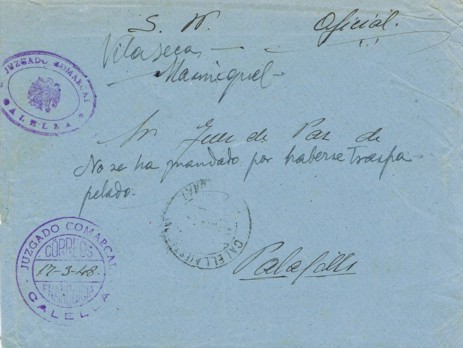 S. N. Oficial.
Vilaseca
JUZGADO COMARCAL
CALELLA
Sr Juez de Paz de
No se ha mandado por haberse traspa-
pelado.
JUZGADO COMARCAL
CORREOS
17-3-48.
FRANQUICIA
CALELLA
CALELLA
Palafolls